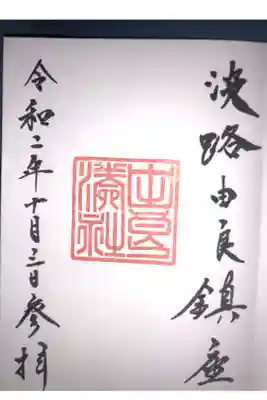 淡路由良鎮座
由良湊社
令和二年十月三日参拝